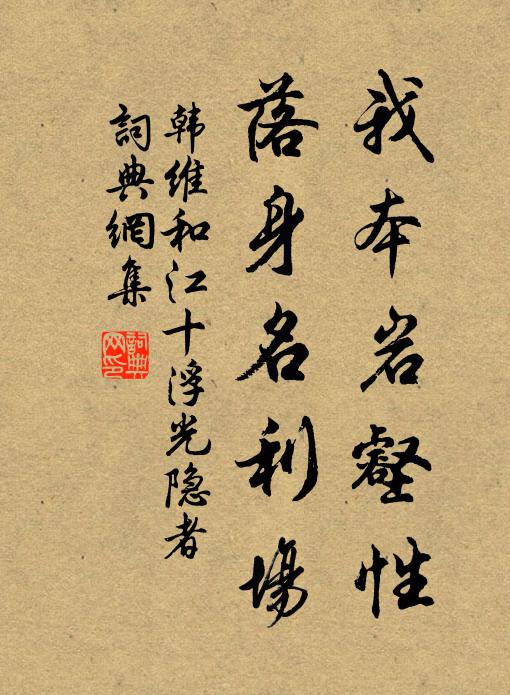 我本岩壑性
落身名利場
韩维和江十浮光隐者
詞典網集
詞典网印